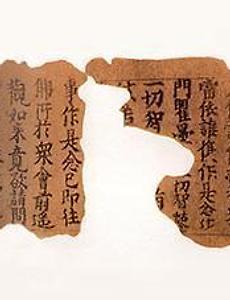 當依誰俱作是念沙
門瞿曇 一切智
一切智
事作是念已即往
佛所於衆會前遥
觀如來意欲請問